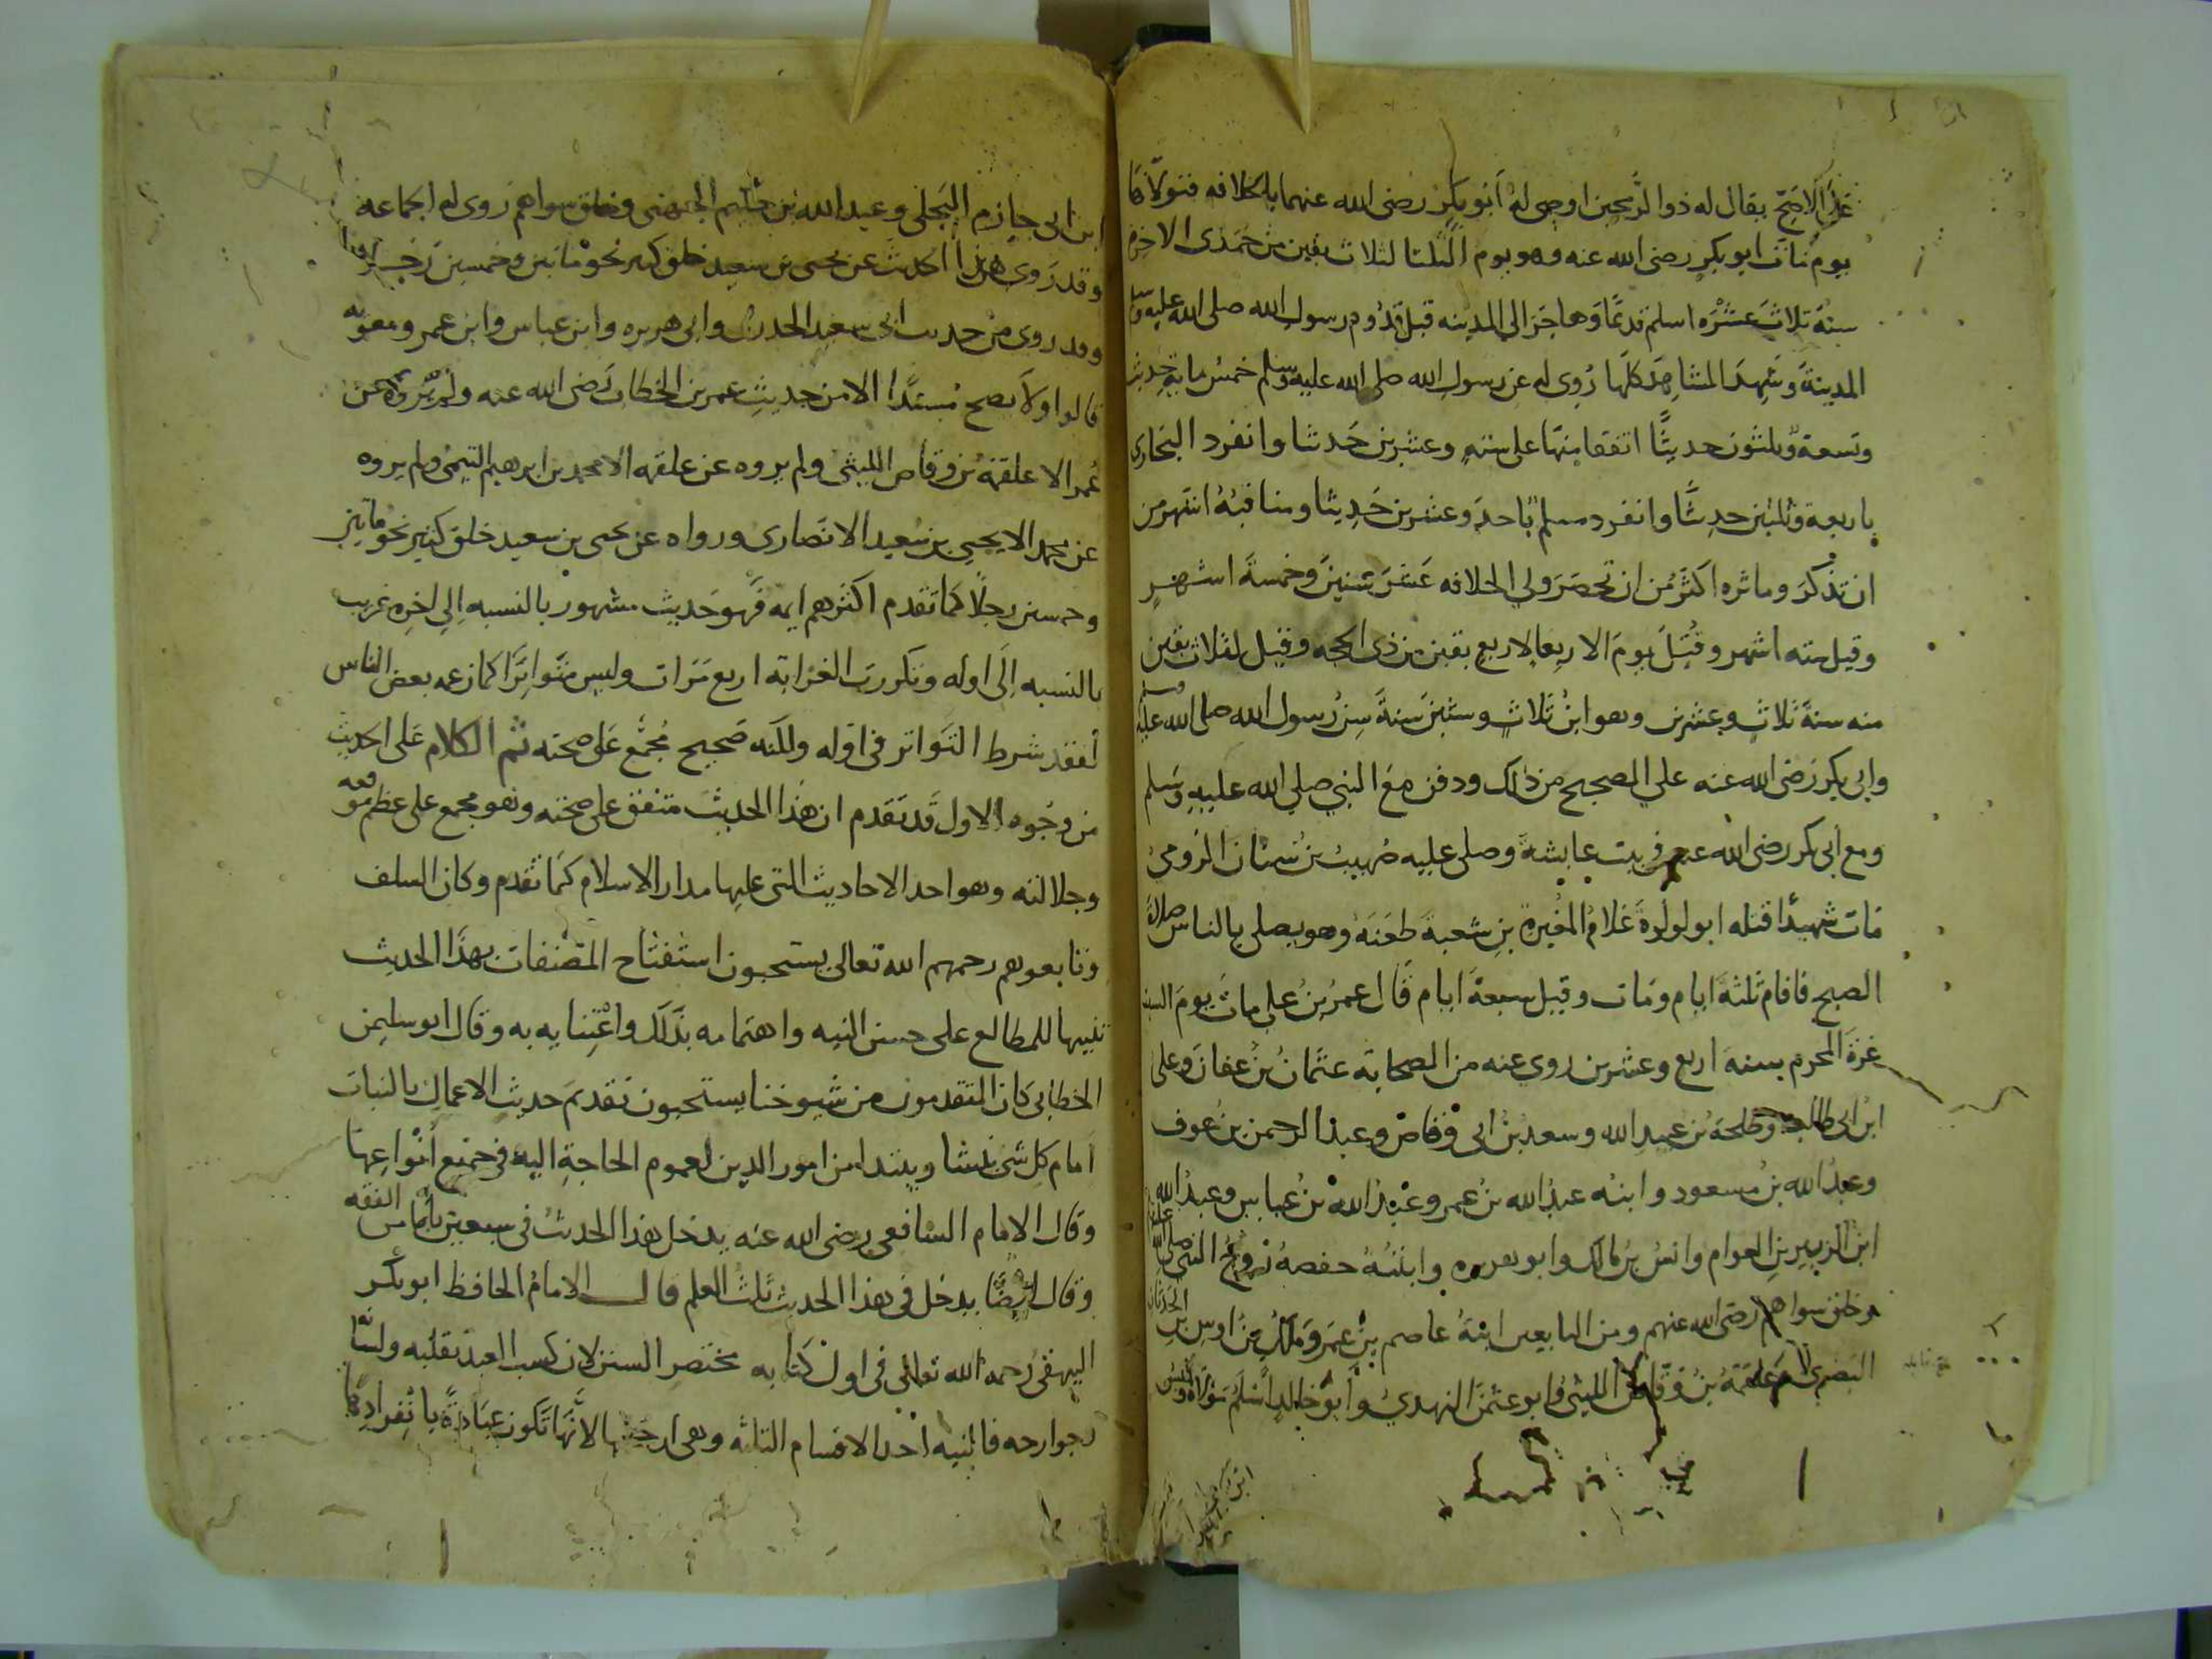 على الاصح يقال له ذو الهجرتين اوصى له أبو بكر رضى الله عنهما بالخلافه فتولاها
يوم مات ابو بكر رضى الله عنه وهو يوم الثلثا لثلاث بقين من جمدى الاخره
سنة ثلاث عشره اسلم قديما وهاجر الى المدينه قبل قدوم رسول الله صلى الله عليه وسلم
المدينة وشهد المشاهد كلها روى له عن رسول الله صلى الله عليه وسلم خمس مايه حديث
وتسعة وثلثون حديثا اتفقا منها على سته وعشرين حديثا وانفرد البخارى
باربعة وثلثين حديثا وانفرد مسلم باحد وعشرين حديثا ومناقبه اشهر من
ان تذكر وماثره اكثر من ان تحصر ولي الخلافه عشر سنين وخمسة اشهر
وقيل سته اشهر وقتل يوم الاربعا لاربع بقين من ذى الحجه وقيل لثلاث بقين
منه سنة ثلاث وعشرين وهو ابن ثلاث وستين سنة سن رسول الله صلى الله عليه وسلم
وابى بكر رضى الله عنه علي الصحيح من ذلك ودفن مع النبي صلي الله عليه وسلم
ومع أبى بكر رضى الله عنهم فى بيت عايشة وصلى عليه صهيب بن سنان الرومي
مات شهيدا قتله ابو لولوة غلام المغيرة بن شعبة طعنه وهو يصلى بالناس صلاة
الصبح فاقام ثلثة ايام ومات وقيل سبعة ايام قال عمر بن على مات يوم السبت
غرة المحرم سنة اربع وعشرين روى عنه من الصحابة عثمان بن عفان وعلى
ابن ابى طالب وطلحة بن عبيد الله وسعد بن ابى وقاص وعبد الرحمن بن عوف
وعبد الله بن مسعود وابنه عبد الله بن عمر وعبد الله بن عباس وعبد الله
ابن الزبير بن العوام وانس بن مالك وابو هريره وابنته حفصة زوج النبى صلى الله عليه
وخلق سواهم رضى الله عنهم ومن التابعين ابنه عاصم بن عمر ومالك بن اوس بن الحدثان
النصرى وعلقمة بن وقاص الليثى وابو عثمن النهدي وأبو خالد اسلم مولاه وقيس
ابن ابى حازم البجلى وعبد الله بن عكيم الجهنى وخلق سواهم روى له الجماعه
وقد روى هذا الحديث عن يحيى بن سعيد خلق كثير نحو مائتين وخمسين رجلا
وقد روى من حديث ابى سعيد الخدرى وابى هريره وابن عباس وابن عمر ومعويه
قالوا ولا يصح مسندا الا من حديث عمر بن الخطاب رضى الله عنه ولم يروه عن
عمر الا علقمة بن وقاص الليثى ولم يروه عن علقمه الا محمد بن ابرهيم التيمى ولم يروه
عن محمد الا يحيى بن سعيد الانصارى ورواه عن يحيى بن سعيد خلق كثير نحو مايتين
وخمسين رجلا كما تقدم اكثرهم ايمه فهو حديث مشهور بالنسبه الي اخره غريب
بالنسبه الى اوله وتكررت الغرابه اربع مرات وليس متواترا كما زعمه بعض الناس
لفقد شرط التواتر فى اوله ولكنه صحيح مجمع على صحته ثم الكلام على الحديث
من وجوه الاول قد تقدم ان هذا الحديث متفق على صحته وهو مجمع على عظم موقعه
وجلالته وهو احد الاحاديث التى عليها مدار الاسلام كما تقدم وكان السلف
وتابعوهم رحمهم الله تعالى يستحبون استفتاح المصنفات بهذا الحديث
تنبيها للمطالع على حسن النيه واهتمامه بذلك واعتنايه به وقال ابو سليمن
الخطابى كان المتقدمون من شيوخنا يستحبون تقديم حديث الاعمال بالنيات
أمام كل شى ينشا ويبتدا من امور الدين لعموم الحاجة اليه فى جميع أنواعها
وقال الامام الشافعى رضى الله عنه يدخل هذا الحديث فى سبعين بابا من الفقه
وقال ايضا يدخل فى هذا الحديث ثلث العلم قال الامام الحافظ ابو بكر
البيهقى رحمه الله تعالى فى اول كتابه مختصر السنن لان كسب العبد بقلبه ولسانه
بجوارحه فالنيه احد الاقسام الثلثه وهى ارجحها لانها تكون عبادة بانفرادها